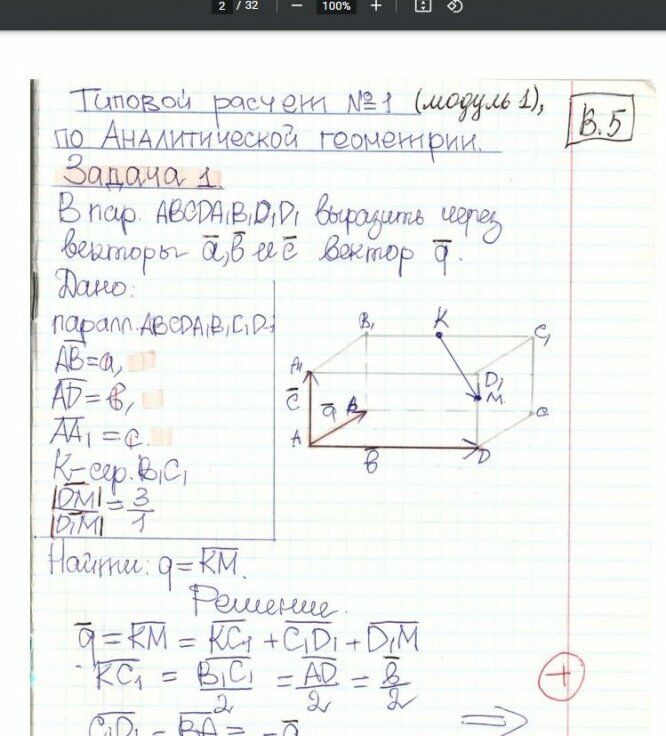 2 / 32 — 100% +
Типовой расчет №1 (модуль 1),
В.5
по Аналитической геометрии.
Задача 1.
В пар. ABCDA₁B₁D₁D₁ выразить через
векторы a̅, b̅ и c̅ вектор q̅.
Дано:
паралл. ABCDA₁B₁C₁D₁
A̅B̅ = a,
A̅D̅ = b,
A̅A̅₁ = c.
K - сер. B₁C₁
|D̅M̅| = 3
|D̅₁M̅| 1
B₁ K C₁
A₁ D₁
M
c̅ a̅ B C
A D
b̅
Найти: q = K̅M̅.
Решение.
q̅ = K̅M̅ = K̅C̅₁ + C̅₁D̅₁ + D̅₁M̅
K̅C̅₁ = B̅₁C̅₁/2 = A̅D̅/2 = b̅/2
+
C̅₁D̅₁ = B̅A̅ = -a̅ ⇒